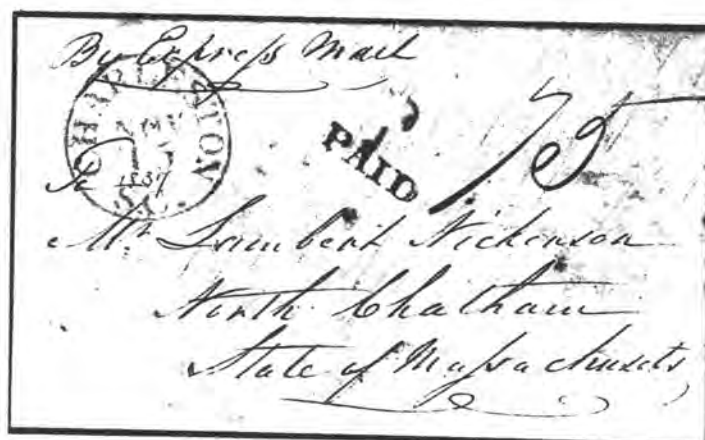 By Express Mail
CHARLESTON S
1837
PAID
75
To
Mr Lambert Nickerson
North Chatham
State of Massachusets